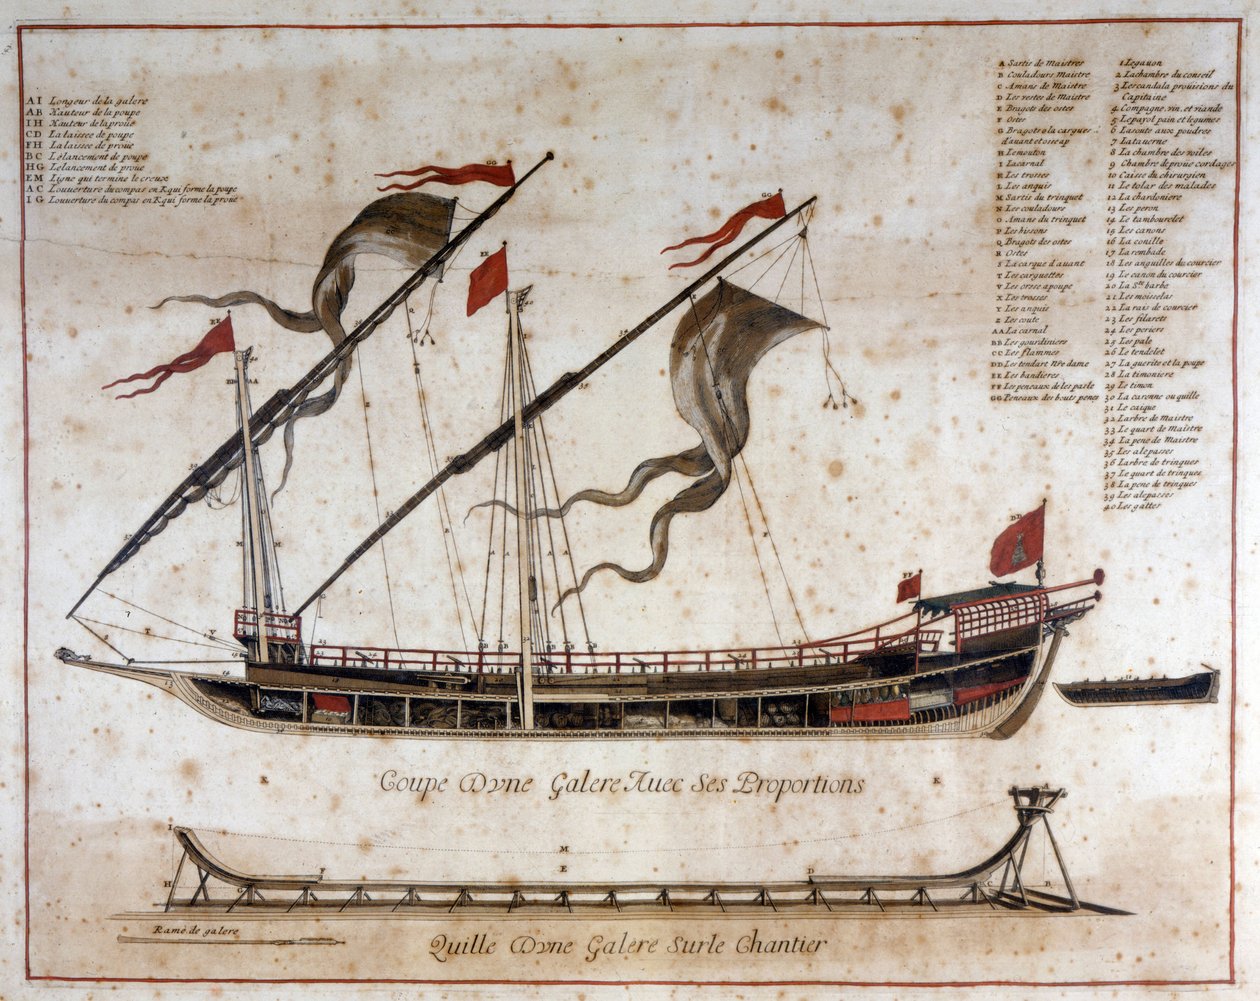 AI Longeur de la galere
AB Hauteur de la poupe
IH Hauteur de la proüe
CD La laissee de poupe
FH La laissee de proüe
BC Lelancement de poupe
HG Lelancement de proüe
EM Ligne qui termine le creux
AC Louuerture du compas en K qui forme la poupe
IG Louuerture du compas en K qui forme la proüe
A Sartis de Maistres
B Couladours Maistre
C Amans de Maistre
D Les restes de Maistre
E Bragots des ostes
F Ostes
G Bragots o la cargue
d'auant et osse ap
H Le mouton
I La carnal
K Les trosses
L Les anquis
M Sartis du trinquet
N Les couladours
O Amans du trinquet
P Les bissons
Q Bragots des ostes
R Ostes
S La carque d'auant
T Les carguettes
V Les orse a poupe
X Les trosses
Y Les anquis
Z Les coute
AA La carnal
BB Les gourdiniers
CC Les flammes
DD Les tendart Nre dame
EE Les bandieres
FF Les peneaux de les pasle
GG Peneaux des bouts penes
1 Legauon
2 La chambre du conseil
3 Lescandala prouisions du
Capitaine
4 Compagne, vin, et viande
5 Le payol pain et legumes
6 La soute aux poudres
7 La tauerne
8 La chambre des voiles
9 Chambre de proüe cordages
10 Caisse du chirurgien
11 Le tolar des malades
12 La chardoniere
13 Les peron
14 Le tambourelet
15 Les canons
16 La conille
17 La rembade
18 Les anguilles du courcier
19 Le canon du courcier
20 La Ste barbe
21 Les moisselas
22 La rais de courcier
23 Les filarets
24 Les periers
25 Les pale
26 Le tendelet
27 La guerite et la poupe
28 La timoniere
29 Le timon
30 La caronne ou quille
31 Le caique
32 Larbre de maistre
33 Le quart de Maistre
34 La pene de Maistre
35 Les alepasses
36 Larbre de trinques
37 Le quart de trinques
38 La pene de trinques
39 Les alepasses
40 Les gattes
Coupe Dvne Galere Auec Ses Proportions
Rame de galere
Quille Dvne Galere Sur le Chantier